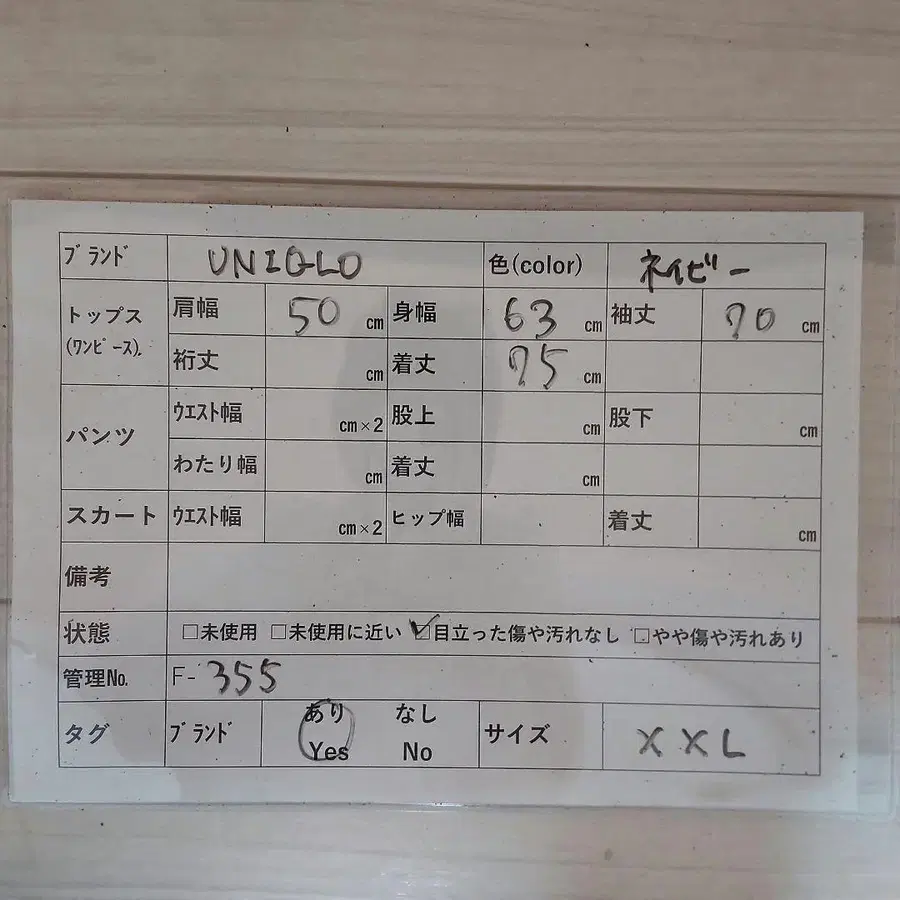 ブランド UNIQLO 色(color) ネイビー
トップス (ワンピース) 肩幅 50 cm 身幅 63 cm 袖丈 70 cm
裄丈 cm 着丈 75 cm
パンツ ウエスト幅 cm×2 股上 cm 股下 cm
わたり幅 cm 着丈 cm
スカート ウエスト幅 cm×2 ヒップ幅 着丈 cm
備考
状態 □未使用 □未使用に近い ☑目立った傷や汚れなし □やや傷や汚れあり
管理No. F-355
タグ ブランド あり Yes なし No サイズ XXL